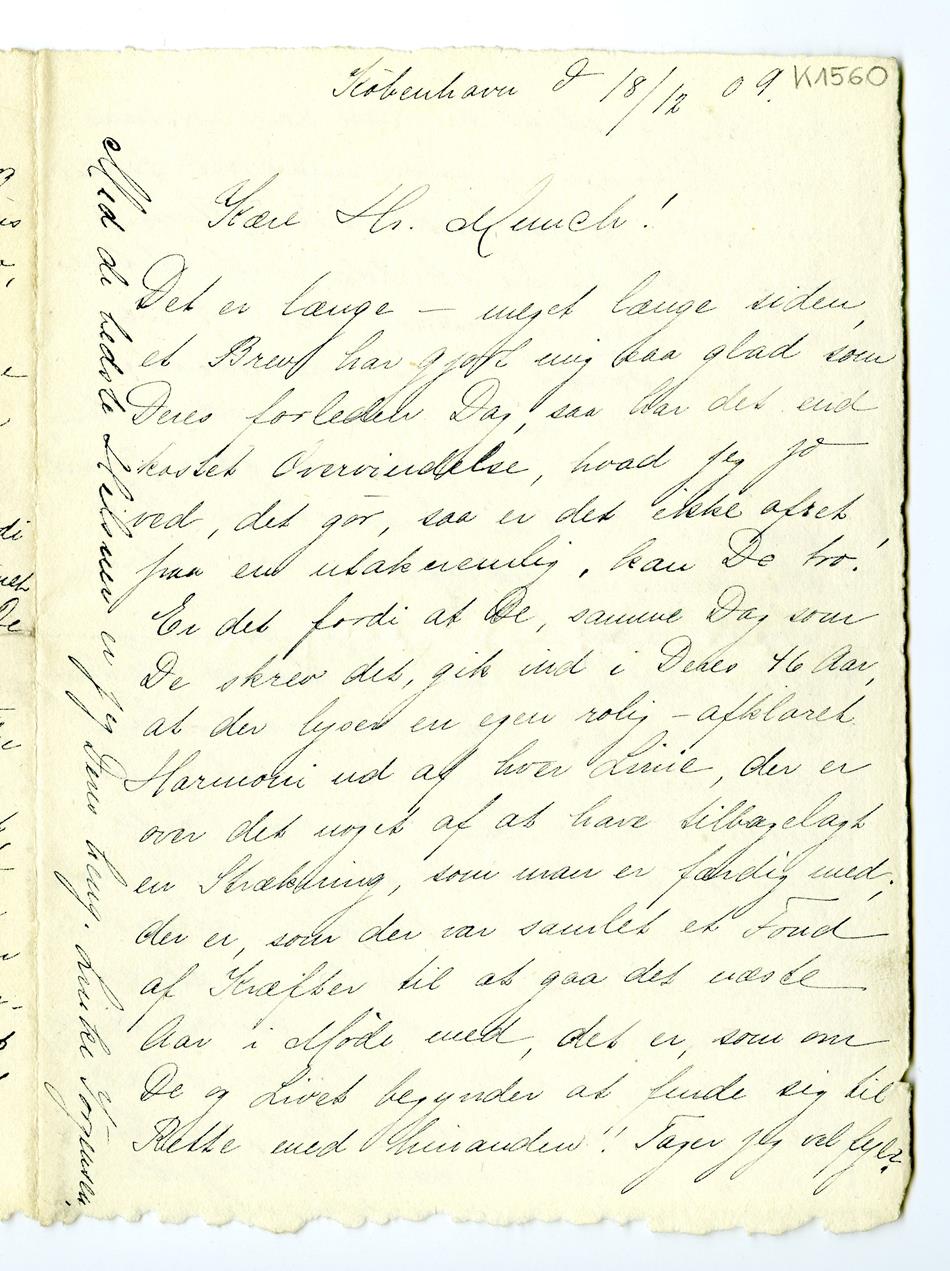 K1560
København d 18/12 09.
Kære Hr. Munch!
Det er længe – meget længe siden,
et Brev har gjort mig saa glad som
Deres forleden Dag, saa har det end
kostet Overvindelse, hvad jeg jo
ved, det gör, saa er det ikke ofret
paa en utaknemlig, kan De tro!
Er det fordi at De, samme Dag som
De skrev det, gik ind i Deres 46 Aar,
at der lyser en egen rolig – afklaret
Harmoni ud af hver Linie, der er
over det noget af at have tilbagelagt
en Strækning, som man er færdig med;
der er, som der var samlet et Fond
af Kræfter til at gaa det næste
Aar i Möde med, det er, som om
De og Livet begynder at finde sig til
Rette med hinanden!! Tager jeg vel fejl?
Med de bedste Hilsner er jeg Deres heng.